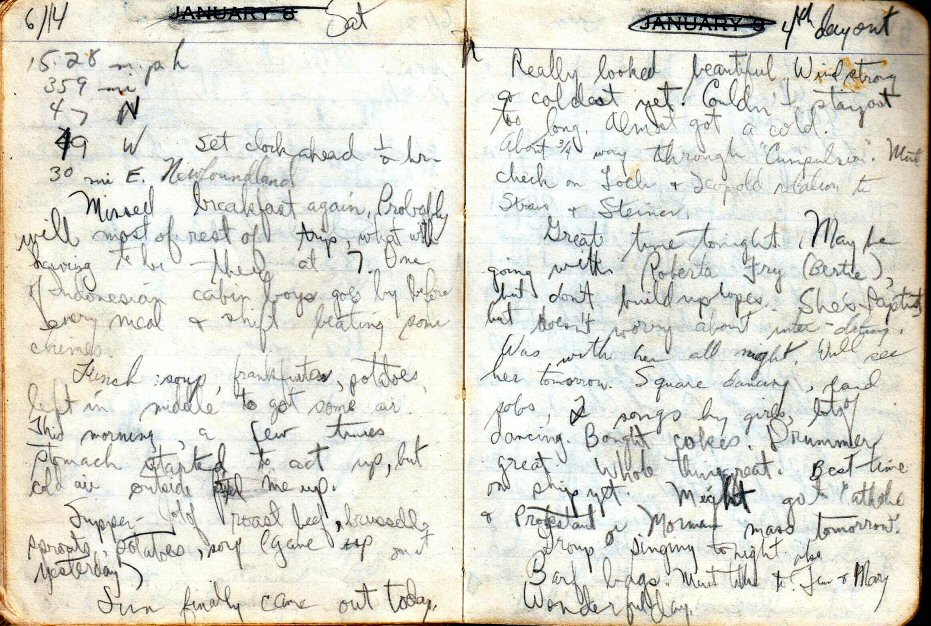 6/14 JANUARY 8 Sat
15.28 mph
359 mi
47 N
49 W Set clock ahead ½ hr
30 mi E. Newfoundland
Missed breakfast again. Probably
will most of rest of trip, what with
having to be there at 7. One
of Indonesian cabin boys goes by before
every meal & shift beating some
chimes.
Lunch: soup, frankfurters, potatoes,
left in middle to get some air.
This morning, a few times
stomach started to act up, but
cold air outside me up.
Supper - lot of roast beef, brussell
sprouts, potatoes, soup (gave up on it
yesterday)
Sun finally came out today.
JANUARY 4th day out
Really looked beautiful. Wind strong
& coldest yet. Couldn't stay out
too long. Almost got a cold.
About ¾ way through "Compulsion". Must
check on Loeb & Leopold relation to
& Steiner.
Great time tonight. May be
going with Roberta Fry (Bertie),
but don't build up hopes. She's Baptist,
but doesn't worry about inter-dating.
Was with her all night. Will see
her tomorrow. Square dancing,
jobs, 2 songs by girls, lots of
dancing. Bought cokes. Drummer
great. Whole thing great. Best time
on ship yet. Might go Catholic
& Protestant & Mormon mass tomorrow.
Group singing tonight also
Barf bags. Must talk to & Mary
Wonderful day.